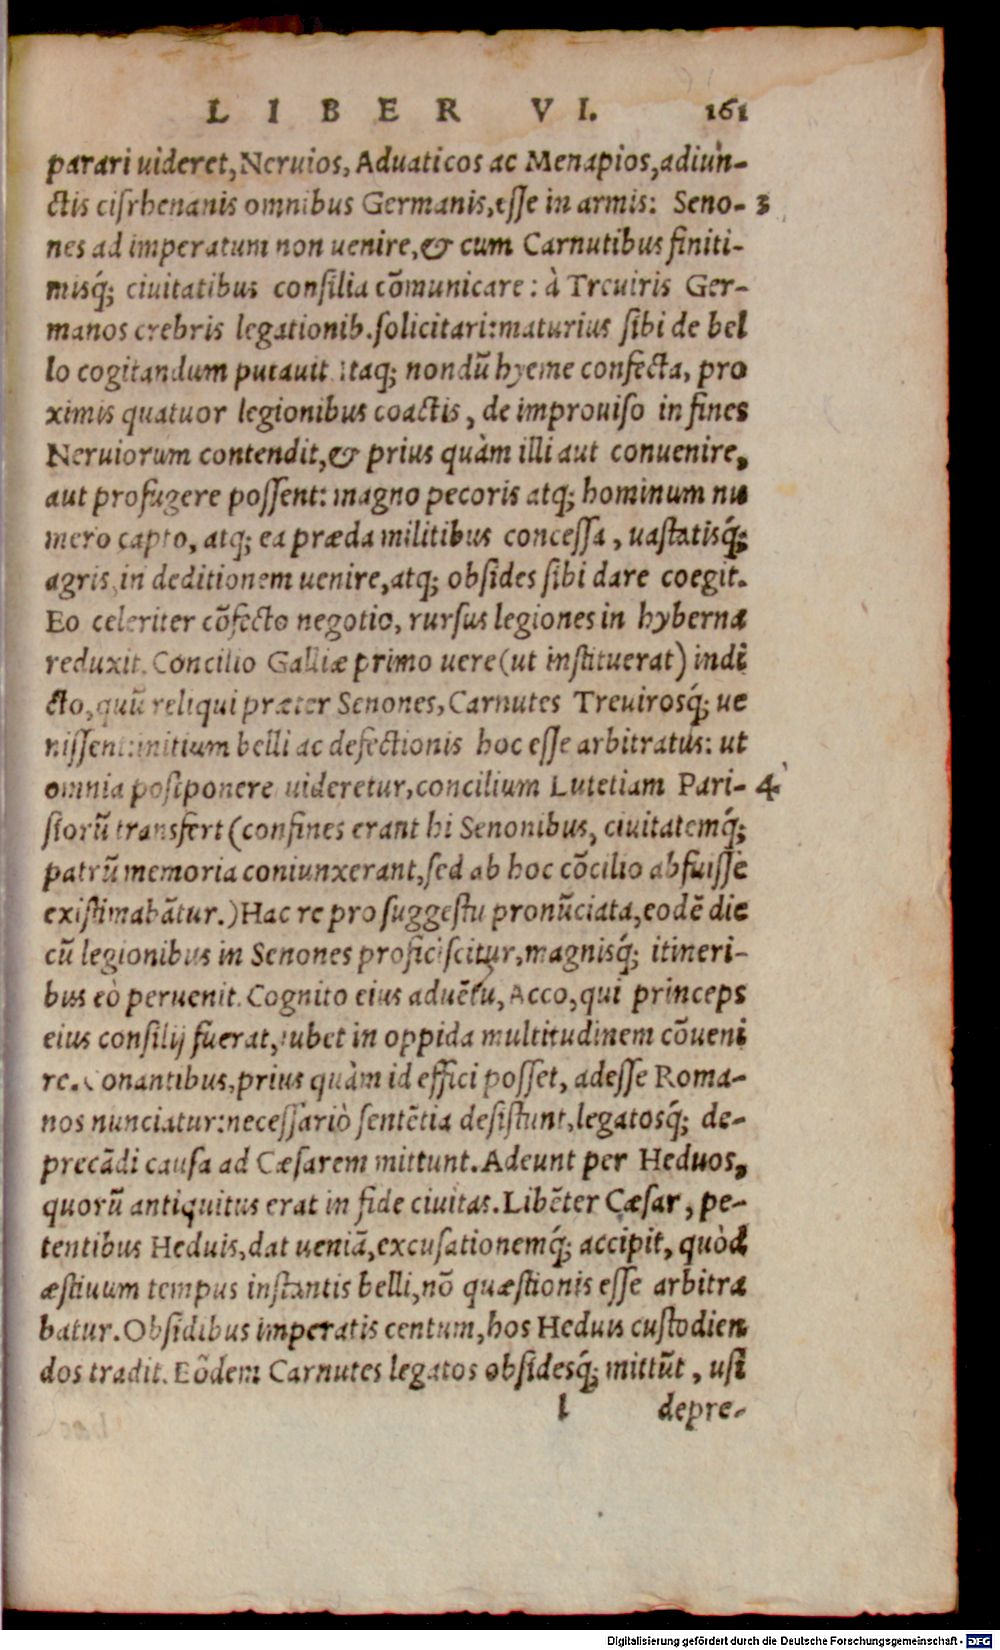 LIBER VI. 161
parari uideret, Neruios, Aduaticos ac Menapios, adiun-
ctis cisrhenanis omnibus Germanis, esse in armis: Seno- 3
nes ad imperatum non uenire, & cum Carnutibus finiti-
misq́; ciuitatibus consilia cōmunicare: à Treuiris Ger-
manos crebris legationib. solicitari: maturius sibi de bel
lo cogitandum putauit. Itaq; nondū hyeme confecta, pro
ximis quatuor legionibus coactis, de improuiso in fines
Neruiorum contendit, & prius quàm illi aut conuenire,
aut profugere possent: magno pecoris atq; hominum nu
mero capto, atq; ea præda militibus concessa, uastatisq́;
agris, in deditionem uenire, atq; obsides sibi dare coegit.
Eo celeriter cōfecto negotio, rursus legiones in hyberna
reduxit. Concilio Galliæ primo uere (ut instituerat) indi
cto, quū reliqui præter Senones, Carnutes Treuirosq́; ue
nissent: initium belli ac defectionis hoc esse arbitratus: ut
omnia postponere uideretur, concilium Lutetiam Pari- 4
siorū transfert (confines erant hi Senonibus, ciuitatemq́;
patrū memoria coniunxerant, sed ab hoc cōcilio abfuisse
existimabātur.) Hac re pro suggestu pronūciata, eodē die
cū legionibus in Senones proficiscitur, magnisq́; itineri-
bus eò peruenit. Cognito eius aduētu, Acco, qui princeps
eius consilij fuerat, iubet in oppida multitudinem cōueni
re. Conantibus, prius quàm id effici posset, adesse Roma-
nos nunciatur: necessariò sentētia desistunt, legatosq́; de-
precādi causa ad Cæsarem mittunt. Adeunt per Heduos,
quorū antiquitus erat in fide ciuitas. Libēter Cæsar, pe-
tentibus Heduis, dat ueniā, excusationemq́; accipit, quòd
æstiuum tempus instantis belli, nō quæstionis esse arbitra
batur. Obsidibus imperatis centum, hos Heduis custodien
dos tradit. Eōdem Carnutes legatos obsidesq́; mittūt, usi
l depre-
Digitalisierung gefördert durch die Deutsche Forschungsgemeinschaft - DFG